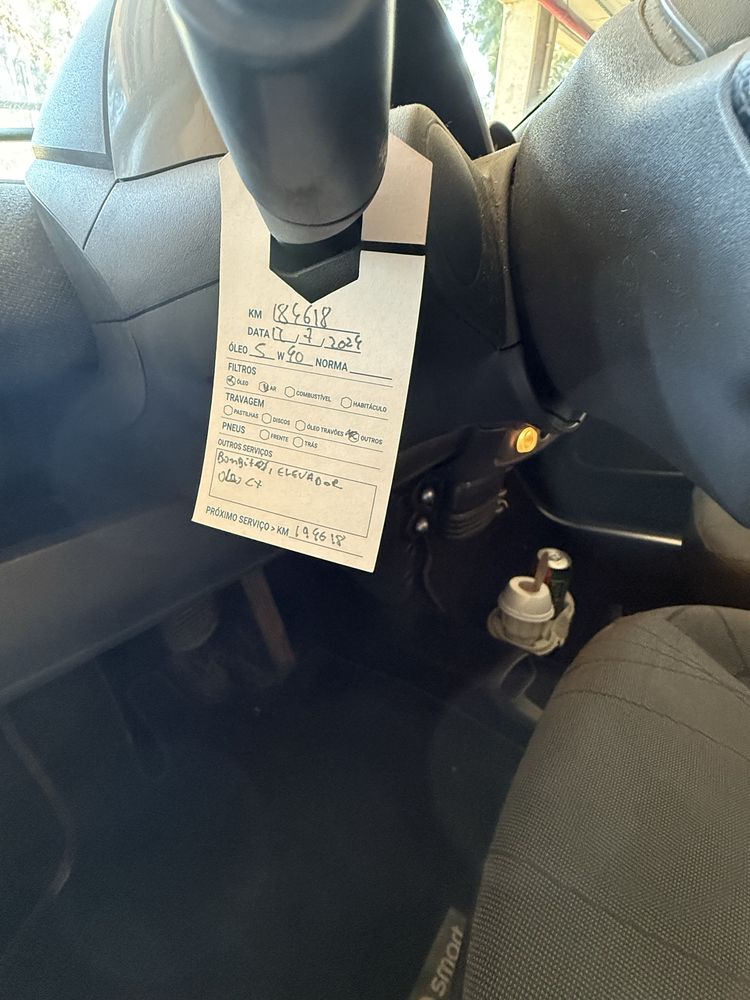 KM 184618
DATA 12, 7, 2024
ÓLEO 5 W 40 NORMA
FILTROS
ÓLEO AR COMBUSTÍVEL HABITÁCULO
TRAVAGEM
PASTILHAS DISCOS ÓLEO TRAVÕES OUTROS
PNEUS FRENTE TRÁS
OUTROS SERVIÇOS
ELEVADOR
CX
PRÓXIMO SERVIÇO > KM 194618
smart